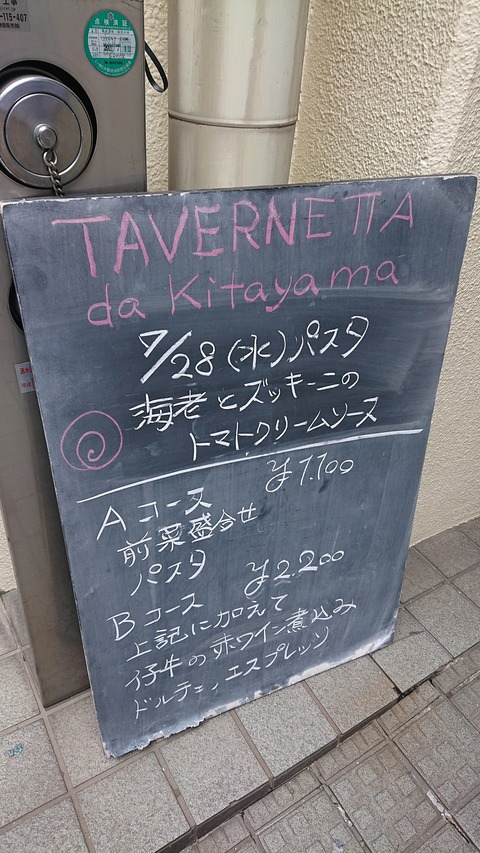 工事
-115-407
点検済証
TAVERNETTA
da Kitayama
7/28(水)パスタ
海老とズッキーニの
トマトクリームソース
Aコース ¥1.100
前菜盛合せ
パスタ
Bコース ¥2.200
上記に加えて
仔牛の赤ワイン煮込み
ドルチェ、エスプレッソ